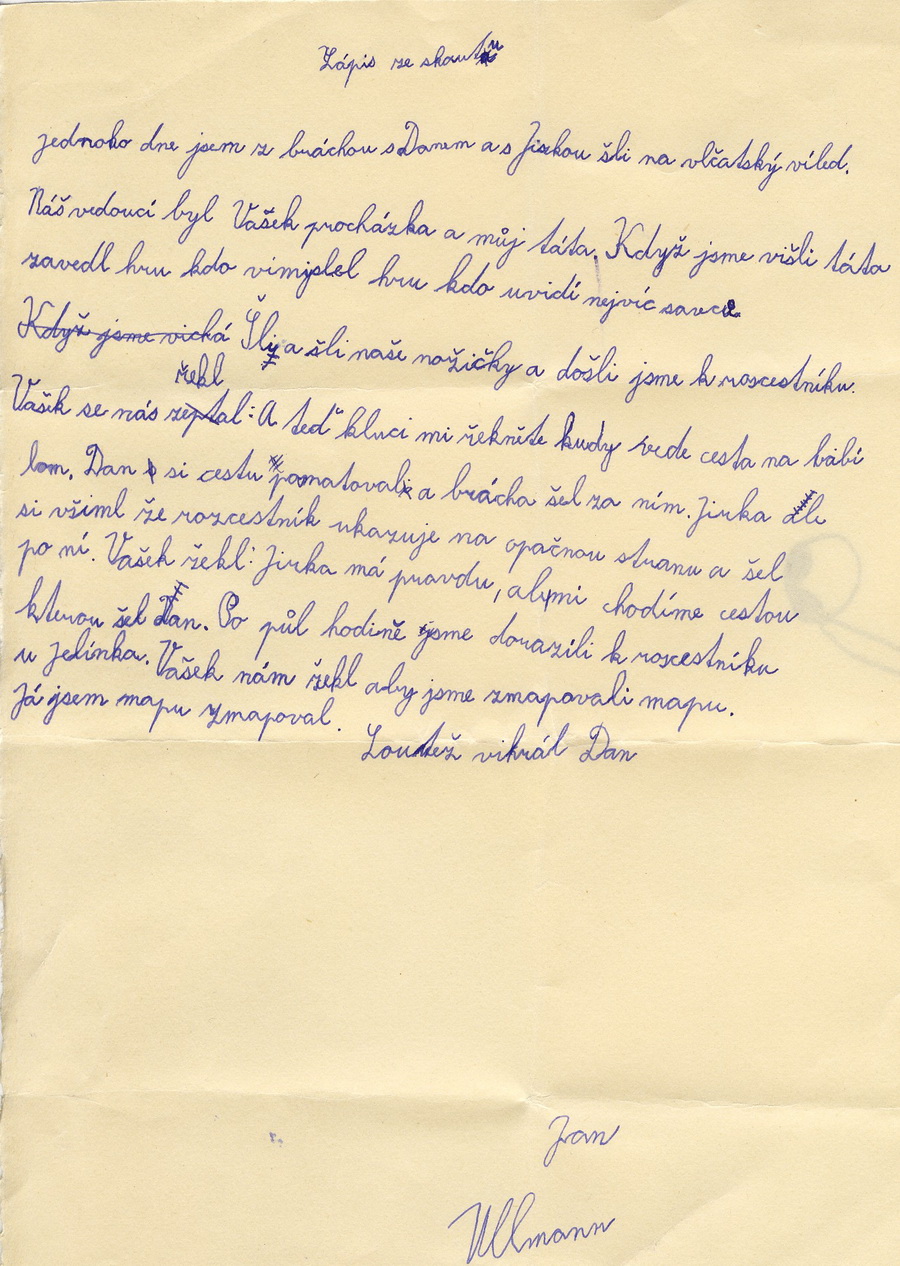 Zápis ze skautu
jednoho dne jsem z bráchou s Danem a s Jirkou šli na vlčatský víled.
Náš vedoucí byl Vašek procházka a můj táta. Když jsme višli táta
zavedl hru kdo vimyslel hru kdo uvidí nejvíc savců
Když jsme vichá Šli a šli naše nožičky a došli jsme k roscestníku.
řekl
Vašik se nás zeptal: A teď kluci mi řekněte kudy vede cesta na babí
lom. Dan si cestu pamatoval a brácha šel za ním. Jirka
si všiml že rozcestník ukazuje na opačnou stranu a šel
po ní. Vašek řekl: Jirka má pravdu, ale mi chodíme cestou
kterou šel Dan. Po půl hodině jsme dorazili k roscestníku
u Jelínka. Vašek nám řekl aby jsme zmapovali mapu.
Já jsem mapu zmapoval.
Loutěž vihrál Dan
Jan
Ullmann